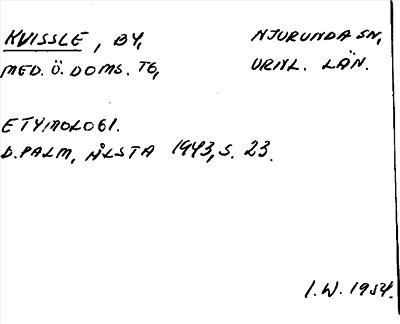 KVISSLE, BY, NJURUNDA SN,
MED. Ö. DOMS. TG, VRNL. LÄN.
ETYMOLOGI.
D. PALM, ÅLSTA 1943, S. 23.
I. W. 1954.